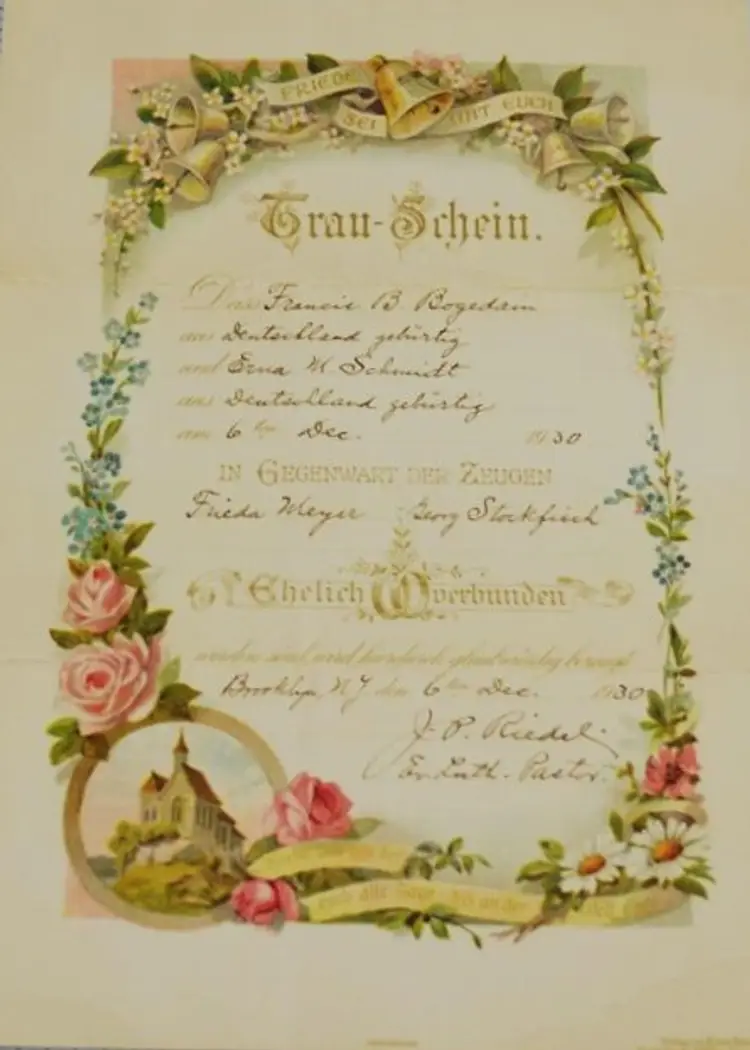 FRIEDE
SEI MIT EUCH
Trau-Schein.
Dass Francis B Bogedain
aus Deutschland gebürtig
und Erna W Schmidt
aus Deutschland gebürtig
am 6ten Dec. 1930
IN GEGENWART DER ZEUGEN
Frieda Meyer Georg Stockfisch
Ehelich verbunden
worden sind wird hierdurch glaubwürdig bezeugt
Brooklyn, N.Y. den 6ten Dec. 1930
J. P. Riedel
Ev. Luth. Pastor.
euch alle Tage bis an der